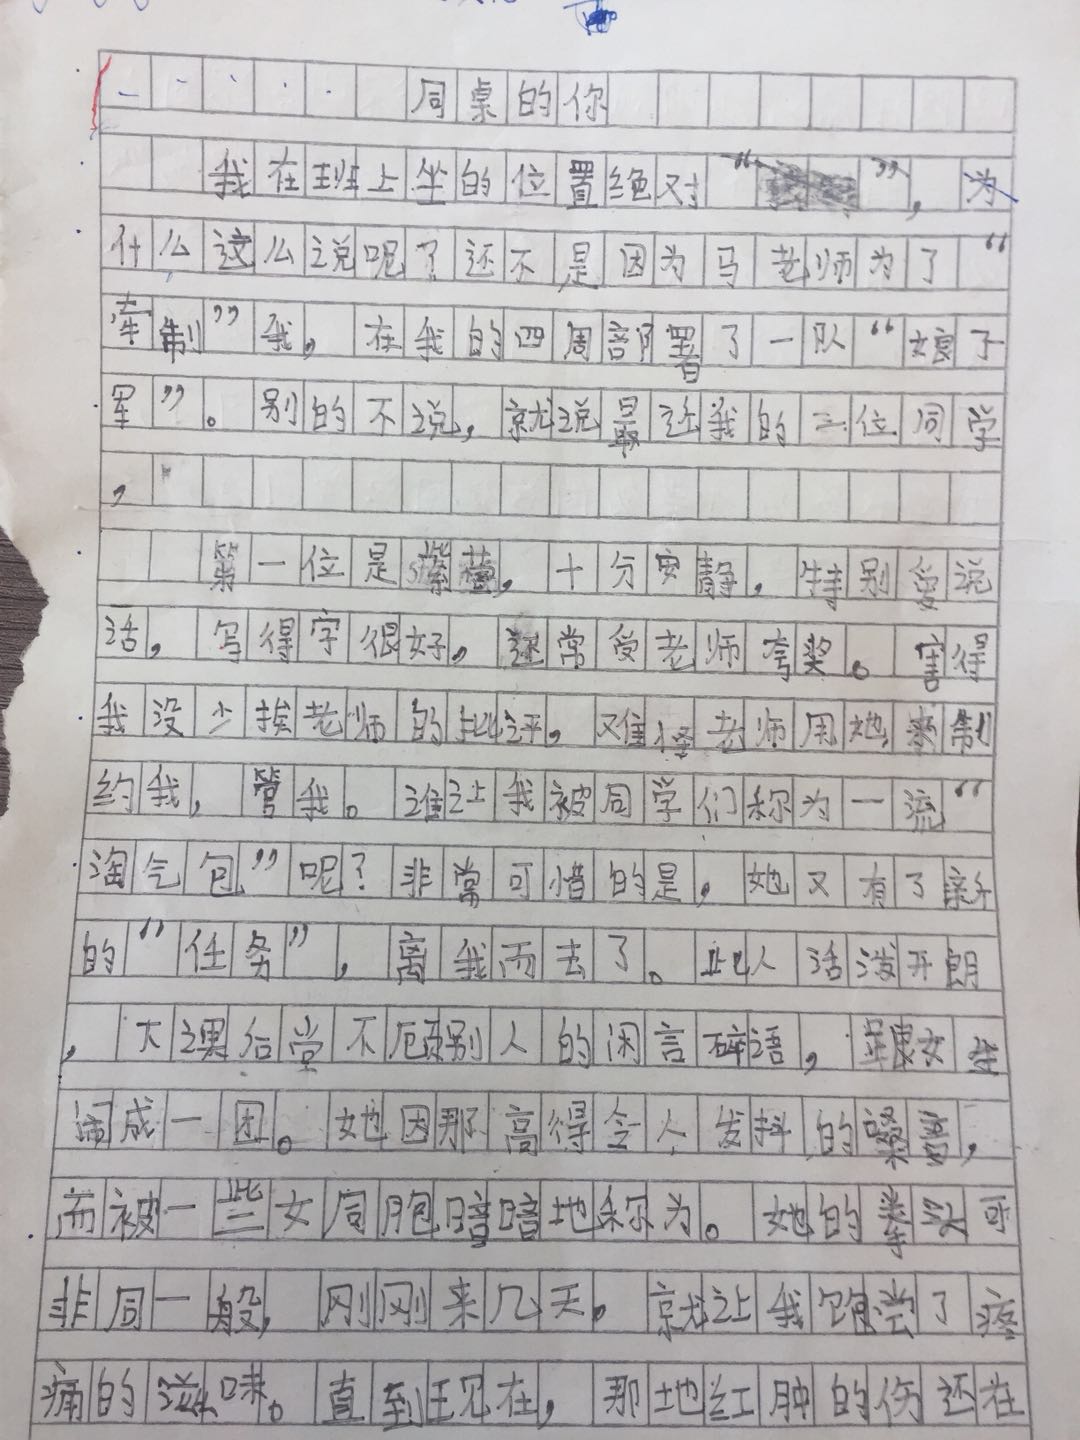 同桌的你
我在班上坐的位置绝对“”，为
什么这么说呢？还不是因为马老师为了“
牵制”我，在我的四周部署了一队“娘子
军”。别的不说，就说最近我的三位同学
，
第一位是紫薇，十分安静，特别爱说
话，写得字很好，还常受老师夸奖。害得
我没少挨老师的批评，难怪老师用她来制
约我，管我。谁让我被同学们称为一流“
淘气包”呢？非常可惜的是，她又有了新
的“任务”，离我而去了。此人活泼开朗
，大课后堂不顾别人的闲言碎语，跟女生
闹成一团。她因那高得令人发抖的嗓音，
而被一些女同胞暗暗地称为。她的拳头可
非同一般，刚刚来几天，就让我饱尝了疼
痛的滋味。直到现在，那地红肿的伤还在